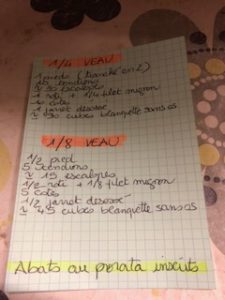 1/4 VEAU
1 pied (tranché en 2)
10 tendrons
≈ 30 escalopes
1 roti + 1/4 filet mignon
10 cotes
1 jarret desossé
≈ 90 cubes blanquette sans os
1/8 VEAU
1/2 pied
5 tendrons
≈ 15 escalopes
1/2 roti + 1/8 filet mignon
5 cotes
1/2 jarret desossé
≈ 45 cubes blanquette sans os
Abats au prorata inscrits